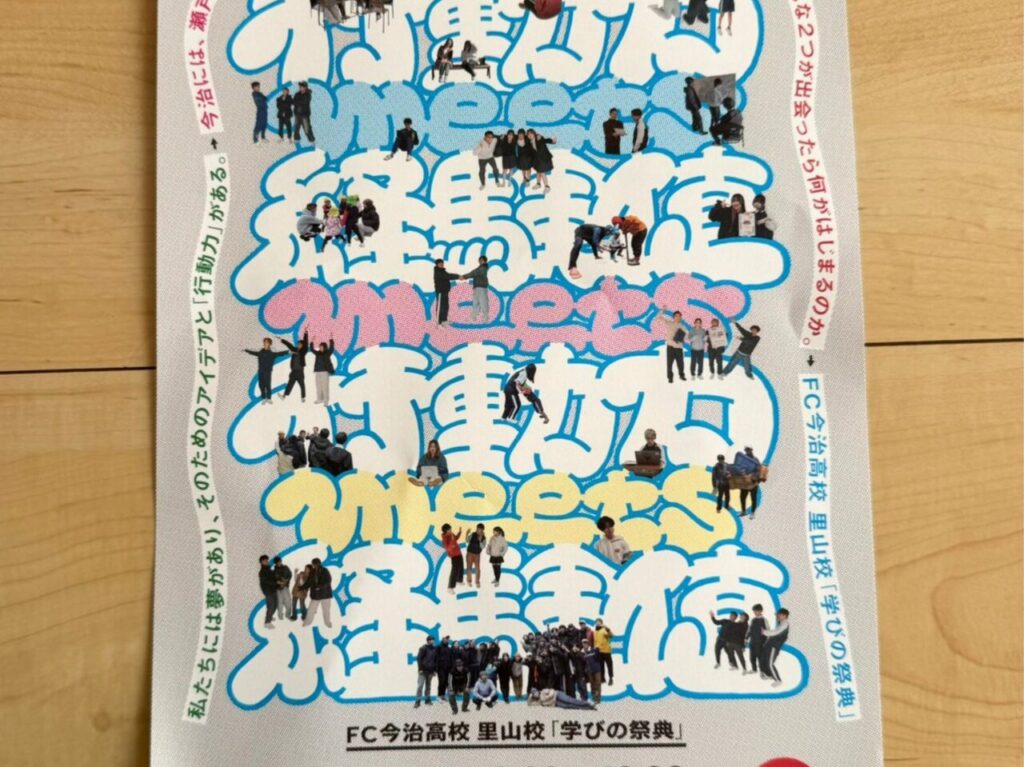 私たちには夢があり、そのためのアイデアと「行動力」がある。→今治には、瀬戸
行動力
meets
経験値
meets
行動力
meets
経験値
な2つが出会ったら何がはじまるのか。→FC今治高校 里山校「学びの祭典」
FC今治高校 里山校「学びの祭典」